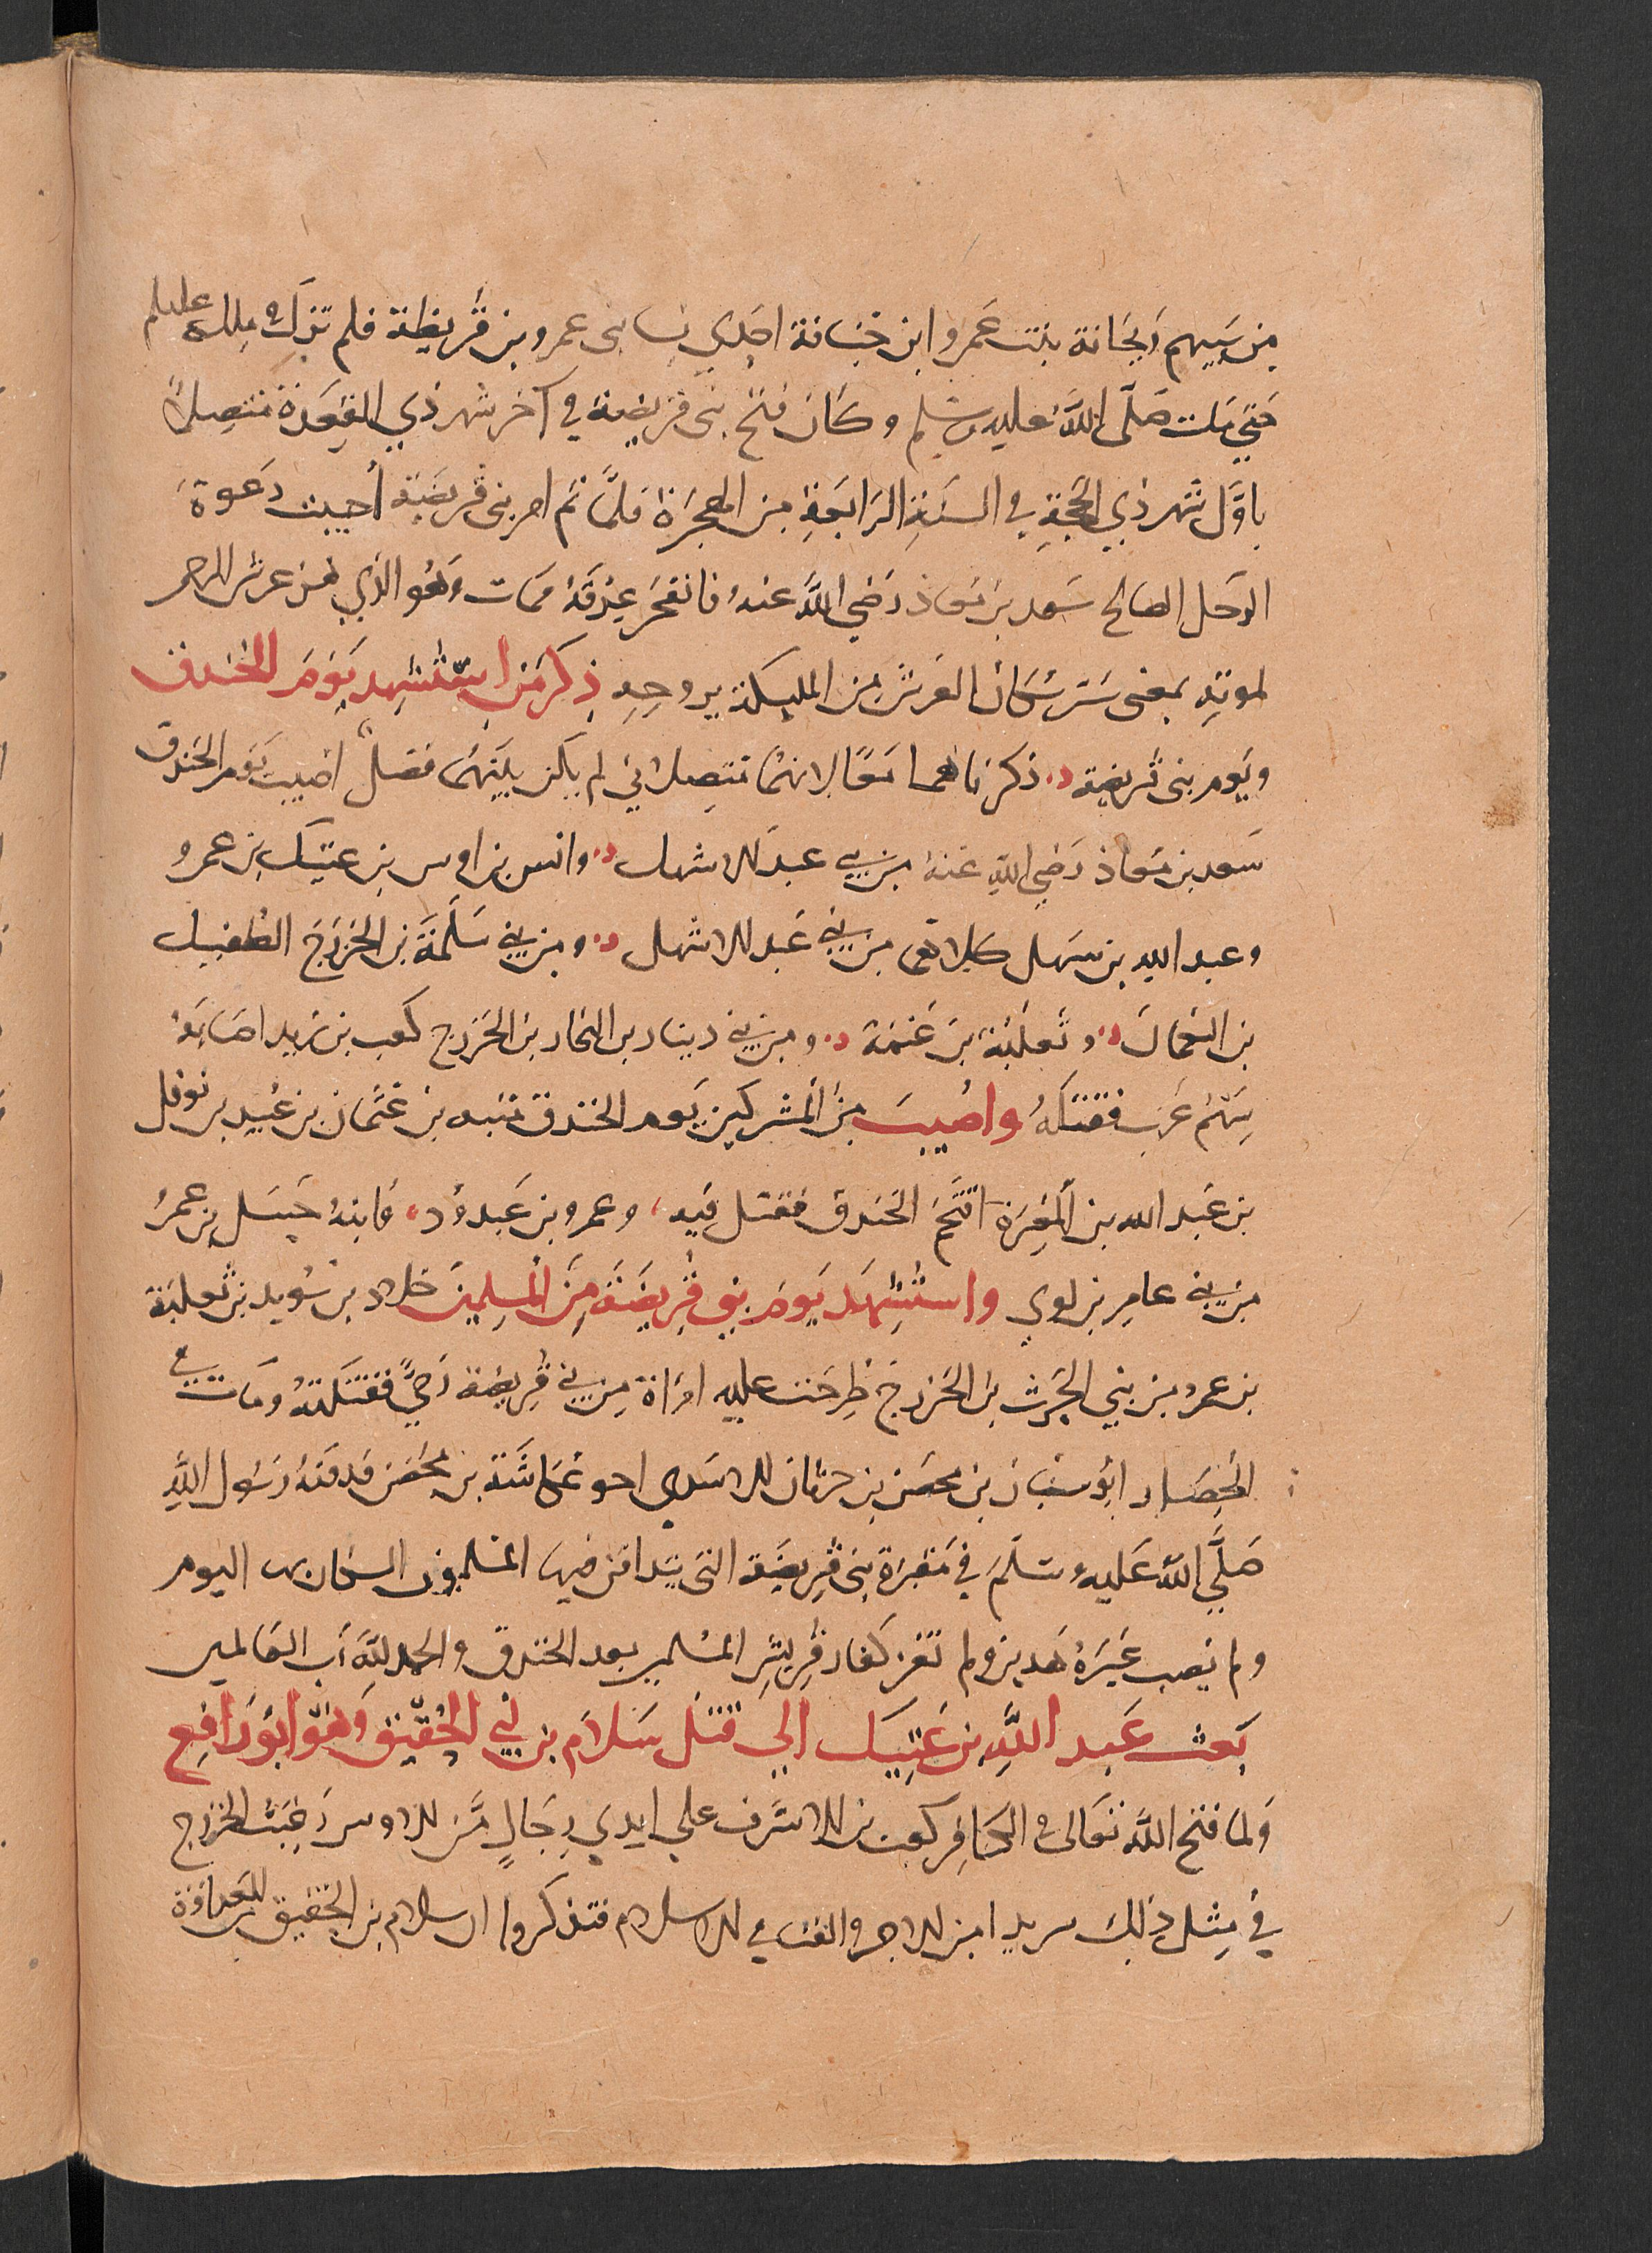 من سبيهم ريحانة بنت عمرو ابن خنانة احدى نسا بنى عمرو بن قريظة فلم تزل في ملكه عليلم
حتي مات صَلّى اللّهُ عليه وسَلم وكَان فتح بنى قريضة في آخر شهر ذي القعدة متصِلاً
باوّل شَهر ذي الحجّةِ في السَنةِ الرَابعَةِ من الهجرَة فلمَّا تم امر بنى قريضَة أجيبت دَعوة
الرجل الصالح سَعد بن معاذ رَضي اللَّه عنهُ فانفجَر عِرْقَهُ فمات وَهُو الذي اهتز عرش الرحمن
لموتهِ بمعنى سُر سُكان العَرش من المليكة بروحِهِ ذِكر مَن استُشهِد يَوَم الخَندق
ويَوم بنى قريضة ذكرناهما مَعًا لانهمَا متصِلا ني لم يكن بينهمَا فصْلٌ اصُيبَ يَوم الخَندق
سَعد بن مَعاذ رَضي اللَّهِ عَنهُ من بني عبد الاشهل وانس بن اوس بن عتيك بن عمرو
وعبد الله بن سَهل كلاهما من بني عَبد الاشهل ومن بني سَلَمَة بن الخزرَج الطُفيل
بن النعمان وثعلبَة بن غَنمَة ومن بني دينار بن النجار بن الخزرج كعب بن زيد اصابَهُ
سَهْمُ غَرب فقتلهُ واصُيبَ مِنَ المشركين يَوم الخندق منبه بن عثمان بن عُبيد بن نوفل
بن عَبد الله بن المغيرة اقتحَم الخندق فقتل فيه وعمرو بن عَبد وُد وَابنهُ حَسل بن عمرو
من بني عامِر بن لوي واستُشهِدَ يَومَ بني قريضَة مِنَ المُسلِمينَ خلاد بن سُويد بن ثَعلبَة
بن عمرو من بني الحَرث بن الخزرج طرحَت عليه امرَاة مِن بني قريضة رَحيً فقتلتهُ ومَات في
الحِصَار ابُو سنَان بن محصَن بن حرثان الاسدي اخو عُكاشَة بن محْصَن فدفنهُ رسُول اللَّهِ
صَلَّي اللّهُ عَليه وسَلّمَ في مَقبرَة بني قريضَة التى يتدافن فيها المسلمون السكان بها اليوم
ولم يُصب غيَرُ هَذين ولم تغز كفار قريش المسْلمين بعد الخندق والحمد للّه رَب العَالمين
بَعث عَبد اللَّهِ بن عَتِيك الي قتْل سَلام بن ابي الحُقَيْق وَهُو ابُو رَافِع
وَلما فتح اللَّه تعَالى في الكَافِر كعب بن الاشرَف علي ايدي رِجَالٍ مِّن الاوس رَغبَت الخزرج
في مِثل ذلِكَ مريدا من الاجر والغنا في الاسلام فتذكروا ان سلام بن الحقيق للعدَاوة